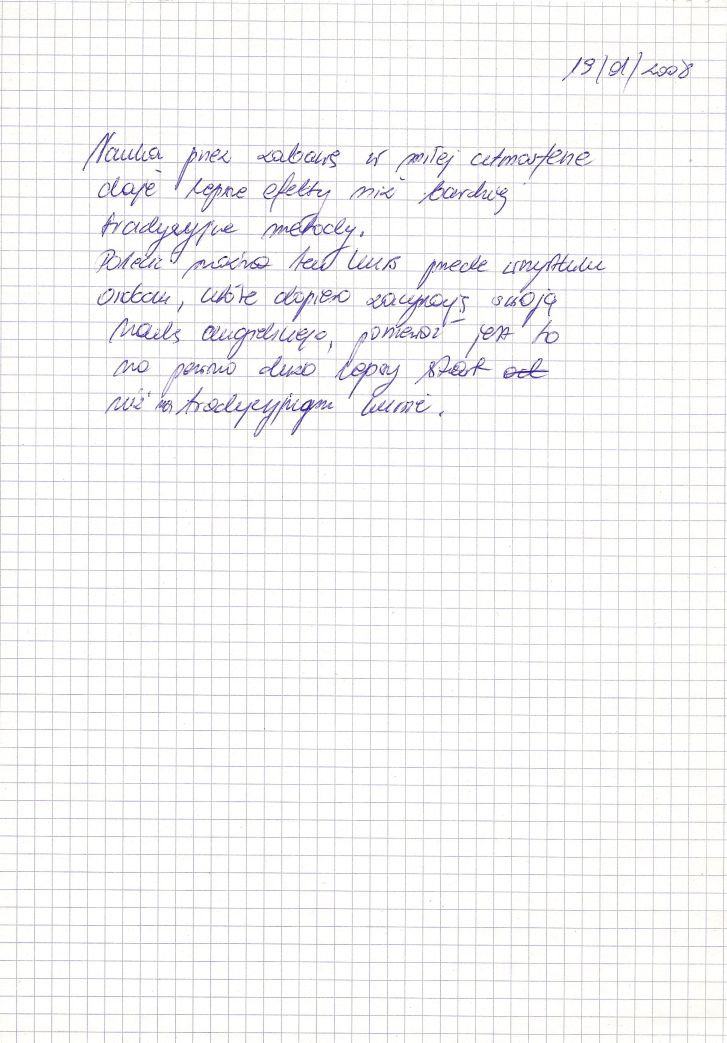 19/01/2008
Nauka przez zabawę w miłej atmosferze
daje lepsze efekty niż bardziej
tradycyjne metody.
Polecić można ten kurs przede wszystkim
osobom, które dopiero zaczynają swoją
naukę angielskiego, ponieważ jest to
na pewno dużo lepszy start od
niż na tradycyjnym kursie.